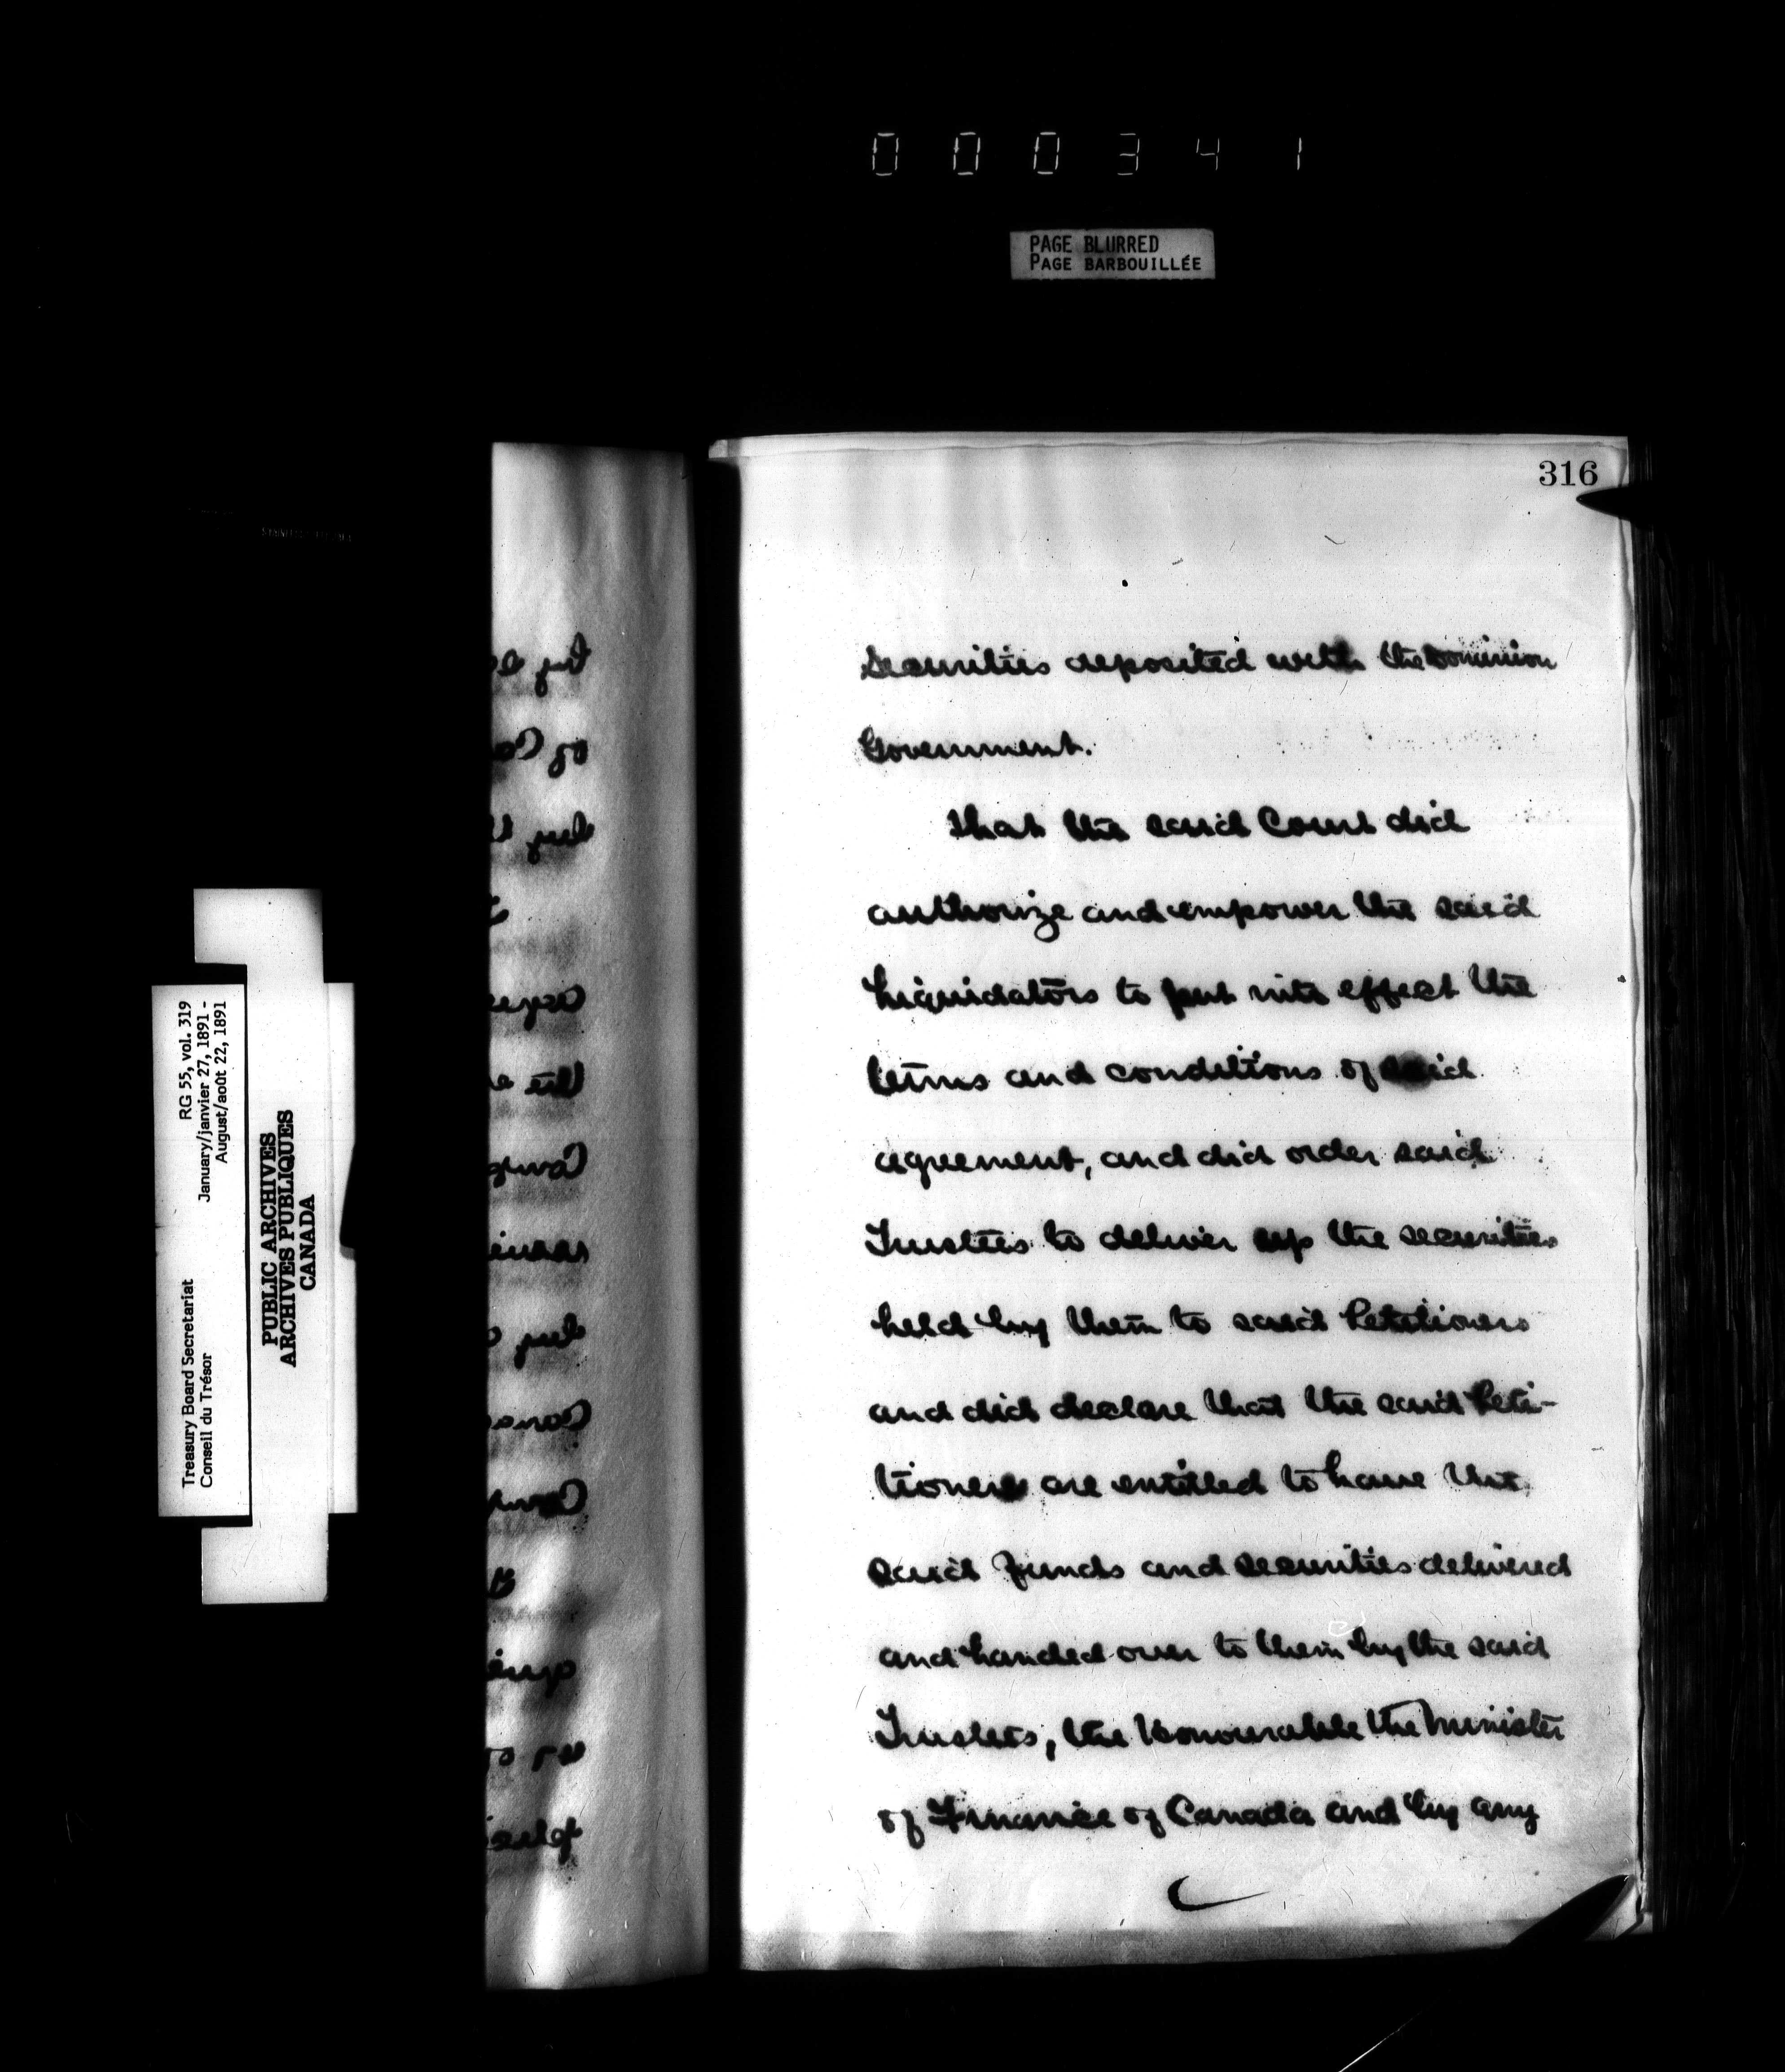 000341
PAGE BLURRED
PAGE BARBOUILLÉE
316
Securities deposited with the Dominion
Government.
That the said Court did
authorize and empower the said
Liquidators to put into effect the
terms and conditions of said
agreement, and did order said
Trustees to deliver up the securities
held by them to said Petitioners
and did declare that the said Peti-
tioners are entitled to have the
said funds and securities delivered
and handed over to them by the said
Trustees, the Honourable the Minister
of Finance of Canada and by any
Treasury Board Secretariat RG 55, vol. 319
Conseil du Trésor January/janvier 27, 1891 -
August/août 22, 1891
PUBLIC ARCHIVES
ARCHIVES PUBLIQUES
CANADA